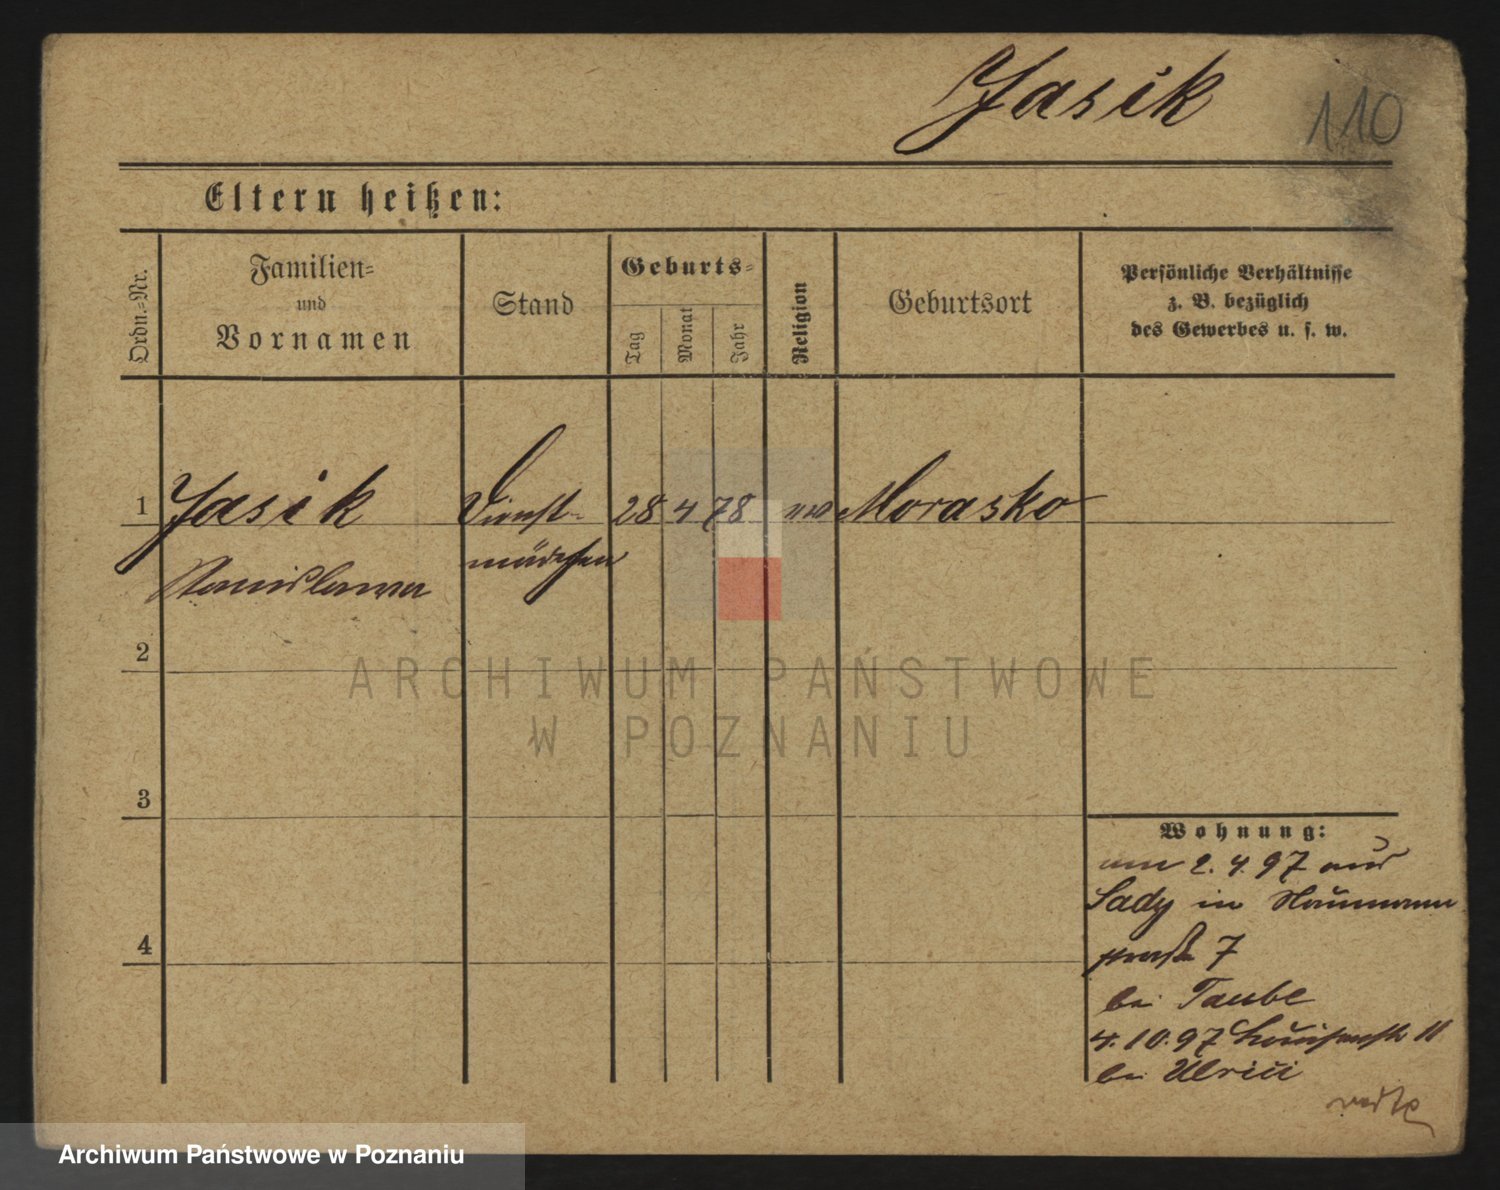 Jasik
110
Eltern heißen:
Ordn.=Nr.
Familien=
und
Vornamen
Stand
Geburts=
Tag
Monat
Jahr
Religion
Geburtsort
Persönliche Verhältnisse
z. B. bezüglich
des Gewerbes u. s. w.
1 Jasik Dienst- 28 4 78 Morasko
Stanislawa mädchen
2
ARCHIWUM PAŃSTWOWE
W POZNANIU
3
Wohnung:
am 2. 4. 97 aus
Sady in Naumann
straße 7
4
bei Taube
4. 10. 97 Louisenstr 11
bei Ulrici
Archiwum Państwowe w Poznaniu